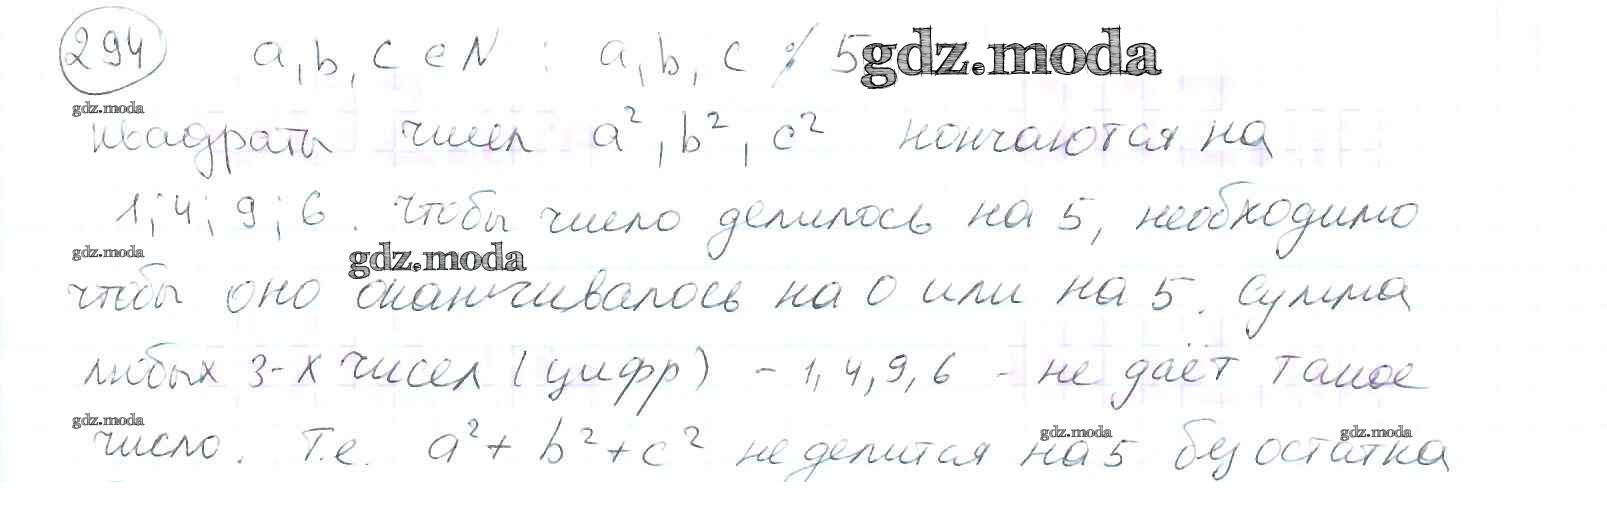 294 a, b, c ∈ N : a, b, c ⋮̸ 5 gdz.moda
gdz.moda
квадраты чисел a², b², c² кончаются на
1; 4; 9; 6. Чтобы число делилось на 5, необходимо
gdz.moda gdz.moda
чтобы оно оканчивалось на 0 или на 5. Сумма
любых 3-х чисел (цифр) - 1, 4, 9, 6 - не даёт такое
gdz.moda gdz.moda gdz.moda
число. Т.е. a² + b² + c² не делится на 5 без остатка